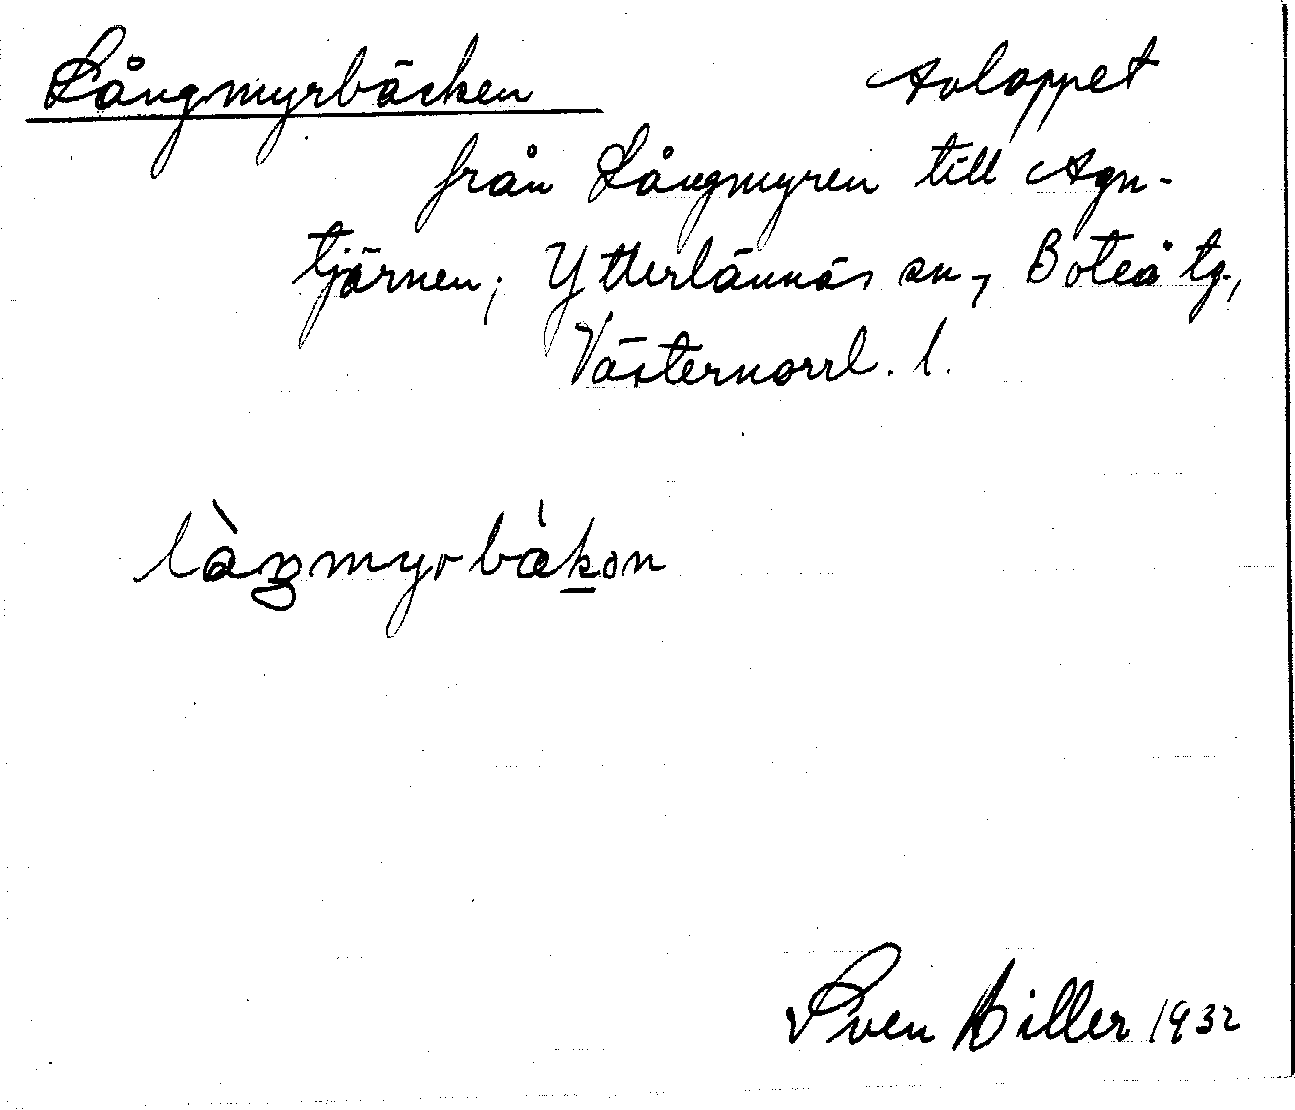 Långmyrbäcken Avloppet
från Långmyren till Agn-
tjärnen; Ytterlännäs sn, Boteå tg.,
Västernorrl. l.
làŋmyrbàkən
Sven Biller 1932